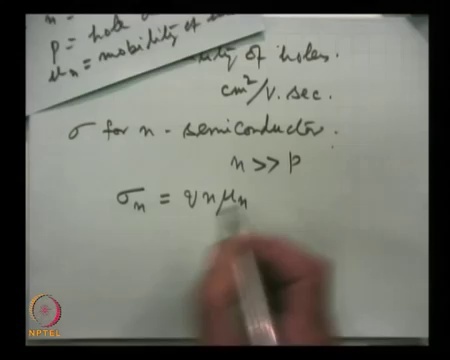 p = hole
μn = mobility of
of holes.
cm²/V. sec.
σ for n - semiconductor.
n >> p
σn = q n μn
NPTEL